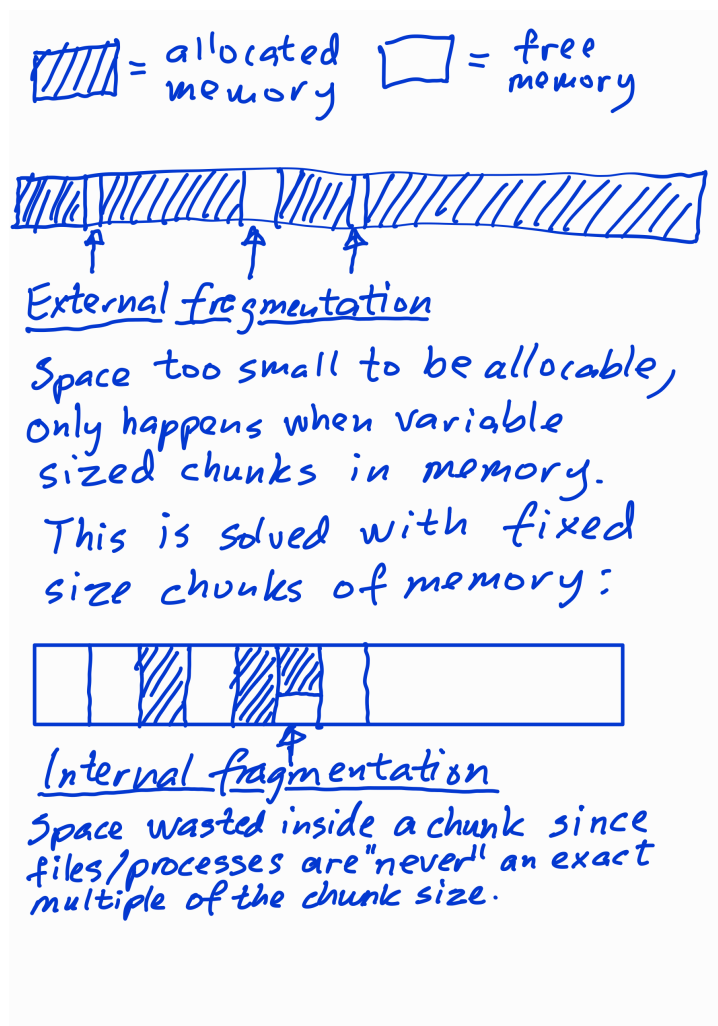 = allocated memory
= free memory
External fregmentation
Space too small to be allocable,
only happens when variable
sized chunks in memory.
This is solved with fixed
size chunks of memory:
Internal fragmentation
Space wasted inside a chunk since
files/processes are "never" an exact
multiple of the chunk size.